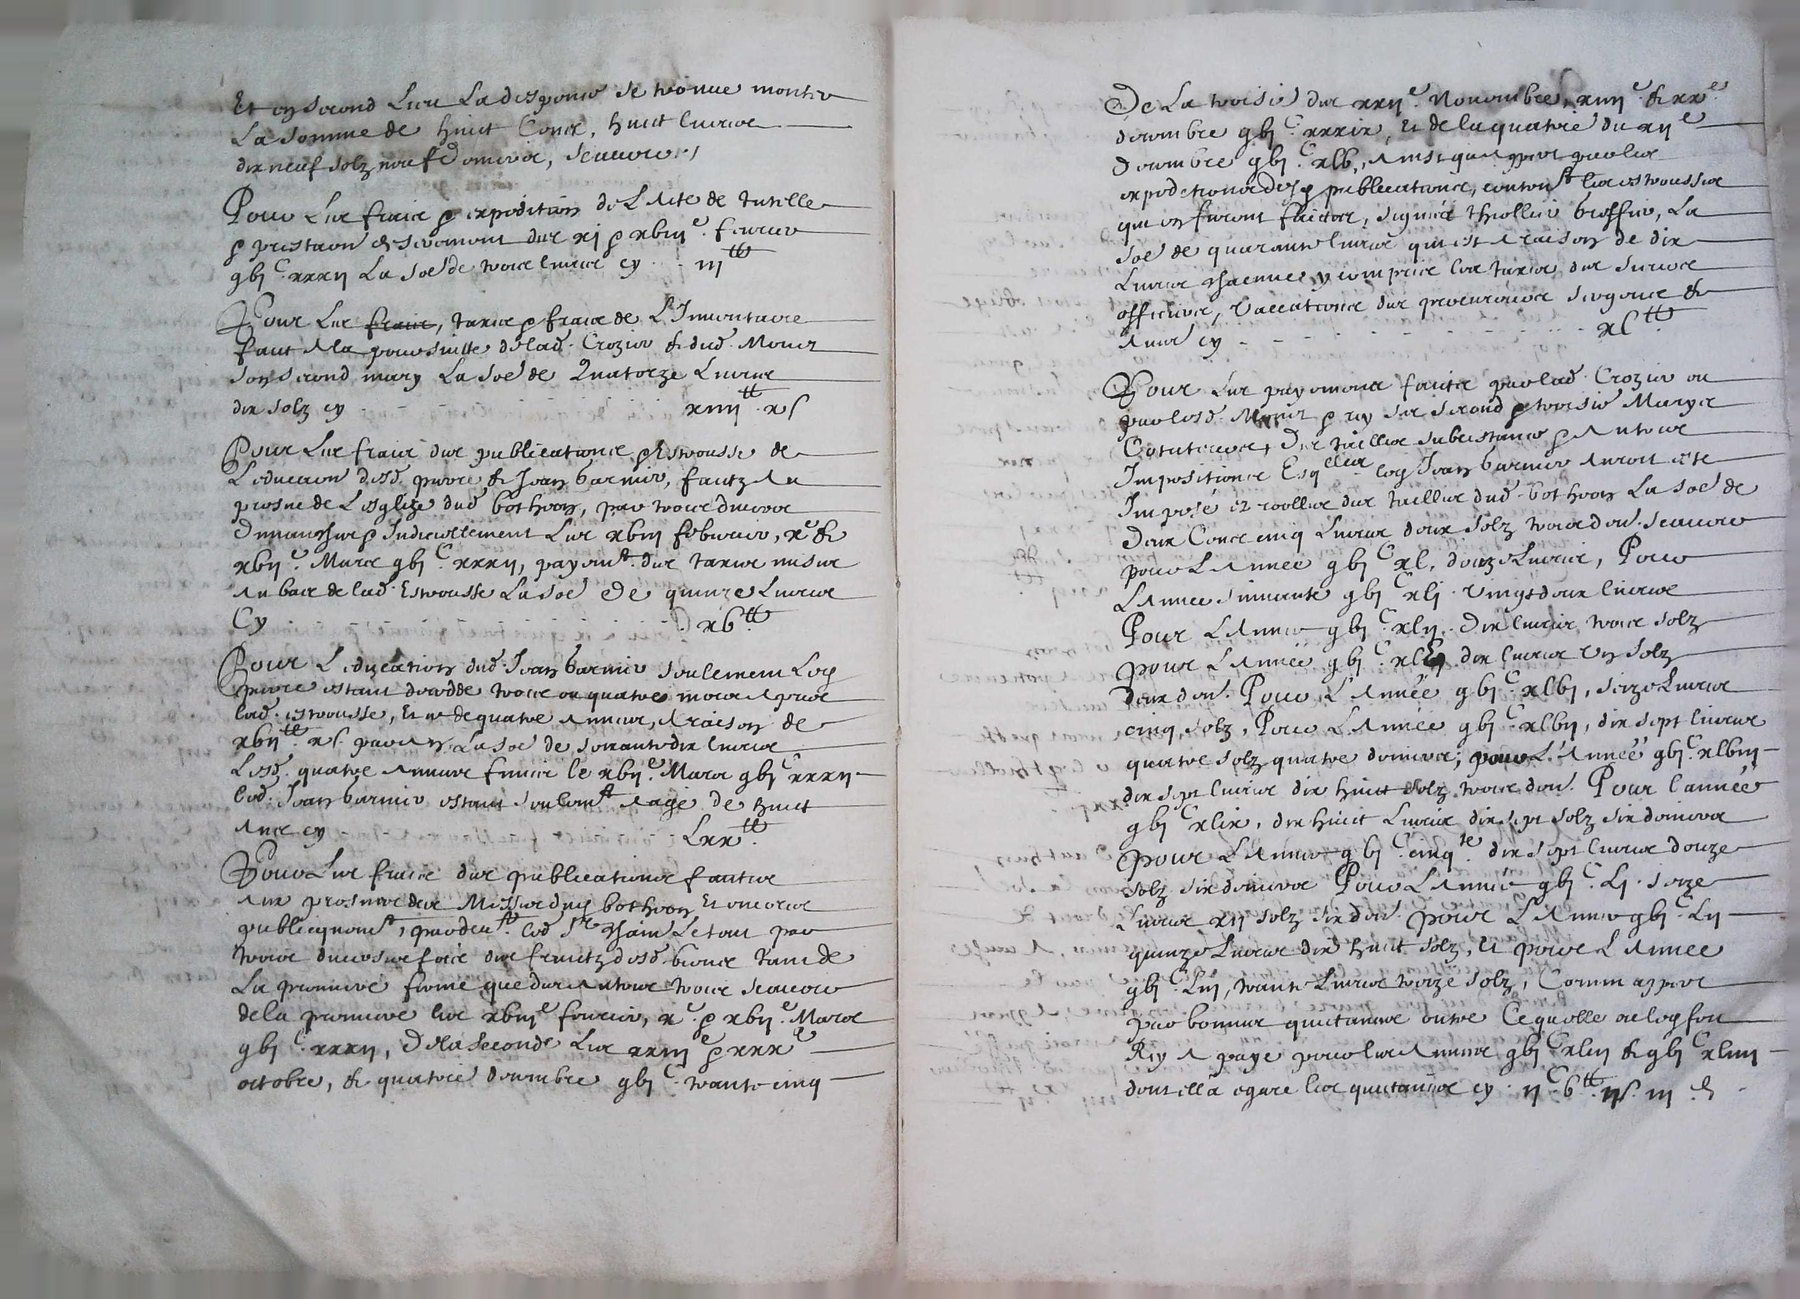 Et en second lieu la despence se treuve monter
la somme de huict Cents, huict livres
dix neuf solz neuf deniers, scavoir
Pour les fraiz & expedition de l'acte de tutelle
& prestaon de serement des xj & xbiije febvrier
gbj C xxxij la soe de trois livres cy iij tt
Pour les frais, taxes & fraiz de l'Inventaire
faict a la poursuitte de lad. Crozier & dud. Monier
son second mary la soe de Quatorze livres
dix solz cy xiiij tt x s
Pour les fraiz des publications & Estrousse de
l'education desd. pierre & Jean barnier, faictz au
prosne de l'esglize dud. botheon, par trois divers
dimanches & Judiciellement les xbiij febvrier, xe &
xbije Mars gbj C xxxij, payemt. des taxes mises
au bas de lad. Estrousse la soe de quinze livres
Cy xb tt
Pour l'education dud. Jean barnier seulement led.
pierre estant decedde trois ou quatres mois apres
lad. estrousse, Et ce de quatre annees, a raison de
xbij tt x s par an la soe de soixante dix livres
Lesd. quatre annees finies le xbije Mars gbj C xxxij
led. Jean barnier estant seulemt. aagé de huict
ans cy Lxx tt
Pour les fraiz des publications faictes
aux prosnes des Messes dud. botheon Et encores
publicquemt, pardevt. led. Sr Le tout par
trois diverses fois des fruictz desd. biens tant de
la premiere ferme que des autres trois scavoir
de la premiere les xbiije febvrier, xe & xbije Mars
gbj C xxxij, De la seconde les xxiije & xxxe
octobre, & quatre decembre gbj C trante cinq
De la troisie des xxije Novembre, xiiije & xxe
decembre gbj C xxxix, Et de la quatrie du xije
Decembre gbj C xlb, ainsi que appert par les
expeditions desd. publications, content les estrousses
qui en furent faictes, signées Thiollier Greffier, La
soe de quarante livres qui est a raison de dix
livres chacune y compris les taxes des sieurs
officiers, vaccations des procureurs sergens &
aues cy xl tt
Pour les payements faictz par lad. Crozier ou
par lesd. Monier & Rey ses second & troisie Marys
Cotuteurs, des tailles subsistance & autres
Impositions Esqlles led. Jean barnier auroit esté
Imposé ez roolles des tailles dud. botheon la soe de
deux Cents cinq livres deux solz trois den. scavoir
pour l'année gbj C xl, douze livres, Pour
l'annee suivante gbj C xlj vingt deux livres
Pour l'annee gbj C xlij. dix livres trois solz
pour l'année gbj C xlb dix livres un solz
deux den. Pour l'année gbj C xlbj, seize livres
cinq solz, Pour l'année gbj C xlbij, dix sept livres
quatre solz quatre deniers; pour l'année gbj C xlbiij
dix sept livres dix huict solz trois den. Pour l'année
gbj C xlix, dix huict livres dix sept solz six deniers
pour l'annee gbj C cinqte dix sept livres douze
solz six deniers Pour l'année gbj C Lj. seize
livres xij solz six den. pour l'annee gbj C Lij
quinze livres dix huict solz, Et pour l'annee
gbj C Liij, trante livres treize solz, Comm appert
par bonnes quictances outre Ce quelle ou led. feu
Rey a payé pour les annees gbj C xliij & gbj C xliiij
dont ell'a egaré les quictances cy ij C b tt ij s. iij d